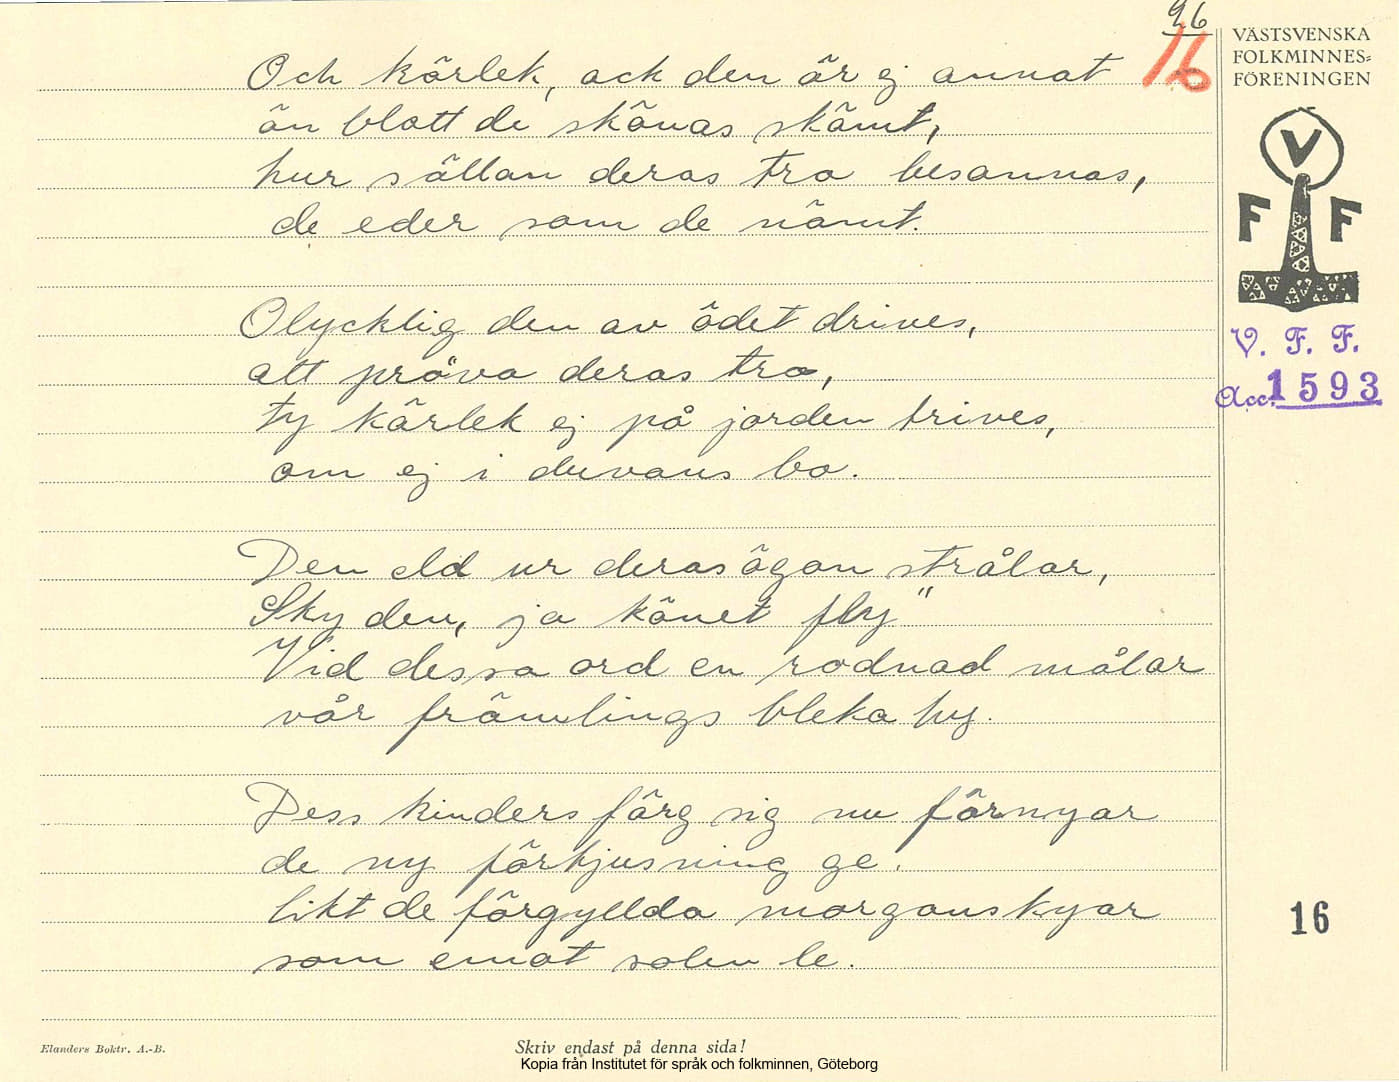 96
16
VÄSTSVENSKA
FOLKMINNES=
FÖRENINGEN
V
F F
V. F. F.
Acc. 1593
Och kärlek, ack den är ej annat
än blott de skönas skämt,
hur sällan deras tro besannas,
de eder som de nämt.
Olycklig den av ödet drives,
att pröva deras tro,
ty kärlek ej på jorden trives,
om ej i duvans bo.
Den eld ur deras ögon strålar,
Sky den, ja könet fly"
Vid dessa ord en rodnad målar
vår främlings bleka hy.
Dess kinders färg sig nu förnyar
de ny förtjusning ge.
likt de förgyllda morgonskyar
som emot solen le.
16
Elanders Boktr. A.-B.
Skriv endast på denna sida!
Kopia från Institutet för språk och folkminnen, Göteborg